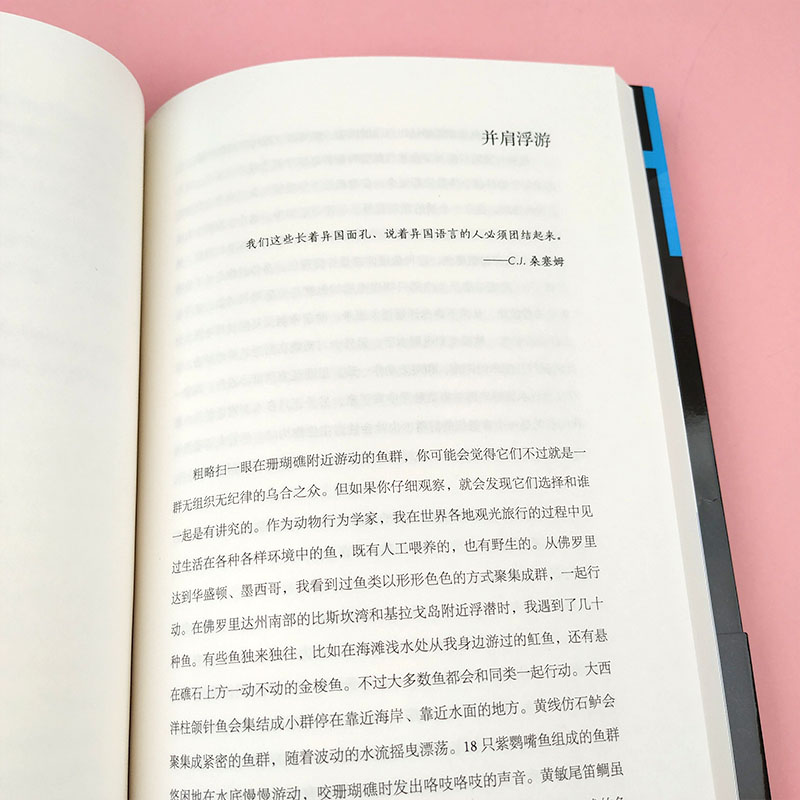 并肩浮游
我们这些长着异国面孔、说着异国语言的人必须团结起来。
——C.J. 桑塞姆
粗略扫一眼在珊瑚礁附近游动的鱼群，你可能会觉得它们不过就是一
群无组织无纪律的乌合之众。但如果你仔细观察，就会发现它们选择和谁
一起是有讲究的。作为动物行为学家，我在世界各地观光旅行的过程中见
过生活在各种各样环境中的鱼，既有人工喂养的，也有野生的。从佛罗里
达到华盛顿、墨西哥，我看到过鱼类以形形色色的方式聚集成群，一起行
动。在佛罗里达州南部的比斯坎湾和基拉戈岛附近浮潜时，我遇到了几十
种鱼。有些鱼独来独往，比如在海滩浅水处从我身边游过的魟鱼，还有悬
在礁石上方一动不动的金梭鱼。不过大多数鱼都会和同类一起行动。大西
洋柱颌针鱼会集结成小群停在靠近海岸、靠近水面的地方。黄线仿石鲈会
聚集成紧密的鱼群，随着波动的水流摇曳漂荡。18 只紫鹦嘴鱼组成的鱼群
悠闲地在水底慢慢游动，咬珊瑚礁时发出咯吱咯吱的声音。黄敏尾笛鲷虽